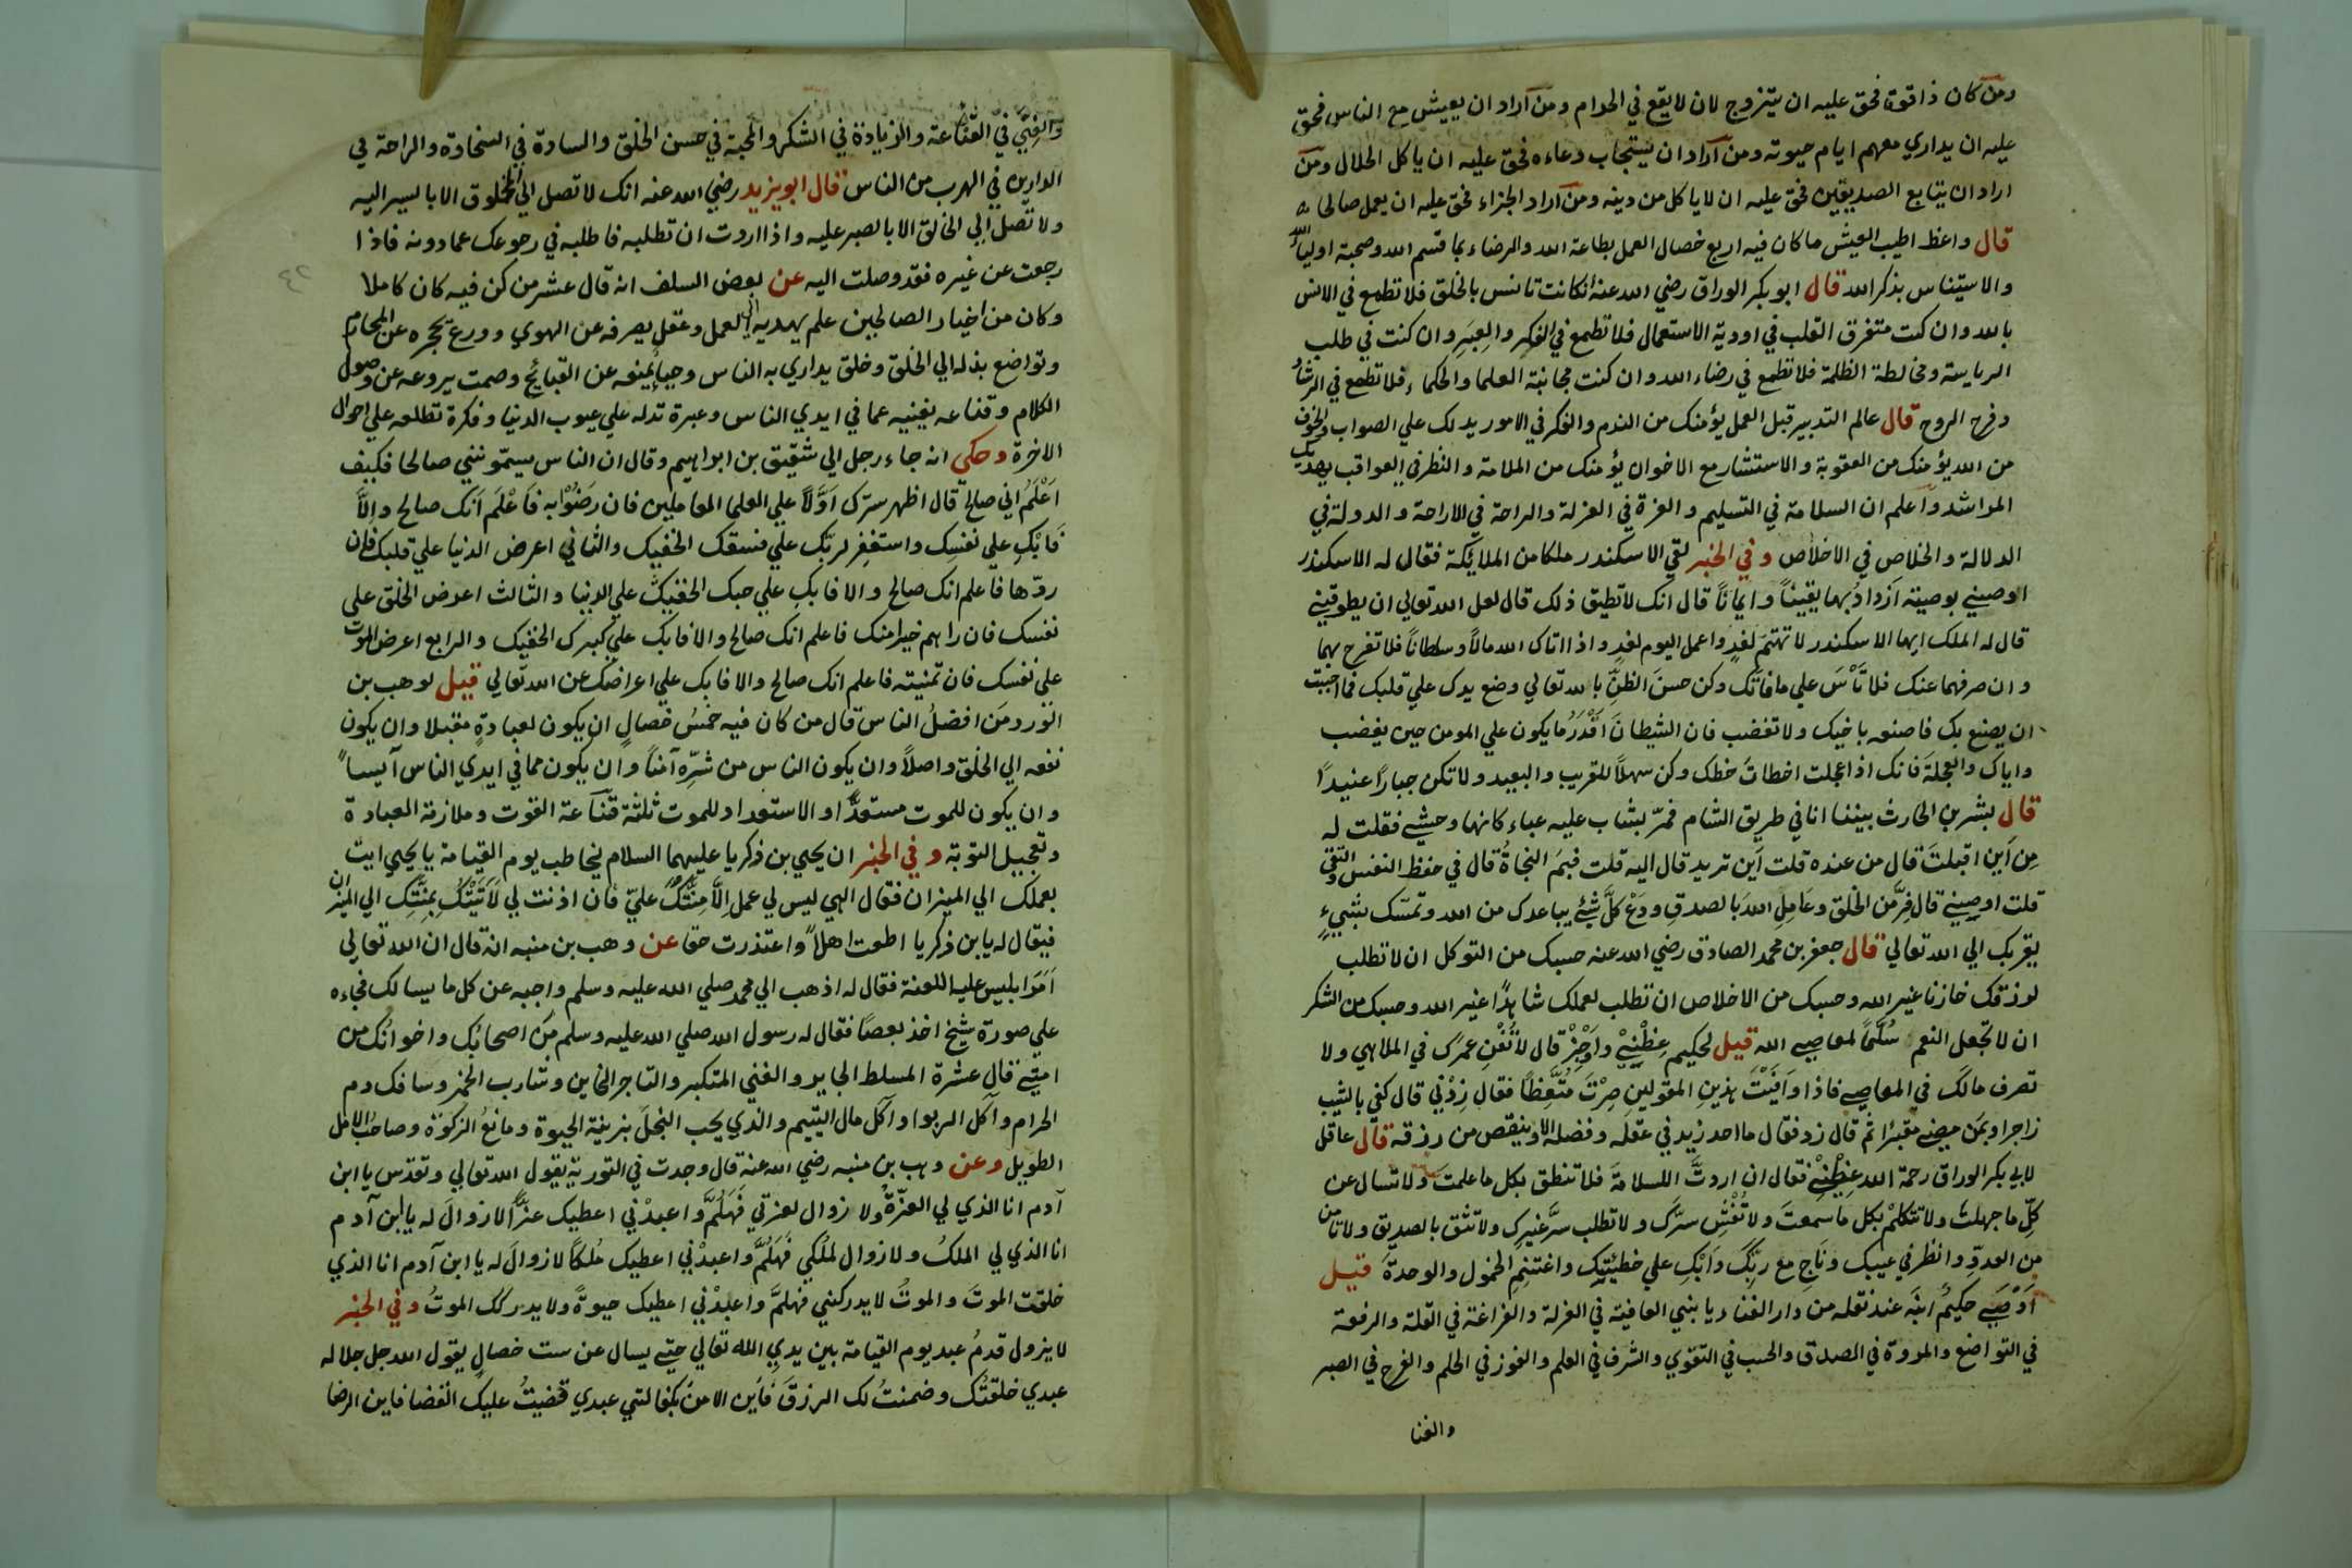 ومن كان ذا قوة فحق عليه ان يتزوج لان لا يقع في الحرام ومن اراد ان يعيش مع الناس فحق
عليه ان يداري معهم ايام حيوته ومن اراد ان يستجاب دعاءه فحق عليه ان ياكل الحلال ومن
اراد ان يتابع الصديقين فحق عليه ان لا ياكل من دينه ومن اراد الجزاء فحق عليه ان يعمل صالحا
قال واعظ اطيب العيش ما كان فيه اربع خصال العمل بطاعة الله والرضاء بما قسم الله وصحبة اولياء
والاستيناس بذكر الله قال ابو بكر الوراق رضي الله عنه ان كانت تانس بالخلق فلا تطمع في الانس
بالله وان كنت متفرق القلب في اودية الاستعمال فلا تطمع في الفكر والعبر وان كنت في طلب
الرياسة ومخالطة الظلمة فلا تطمع في رضاء الله وان كنت مجانبة العلما والحكماء فلا تطمع في الرشاد
وفرح الروح قال عالم التدبير قبل العمل يؤمنك من الندم والفكر في الامور يدلك علي الصواب والخوف
من الله يؤمنك من العقوبة والاستشار مع الاخوان يؤمنك من الملامة والنظر في العواقب يهديك
المراشد واعلم ان السلامة في التسليم والعزة في العزلة والراحة في الاراحة والدولة في
الدلالة والخلاص في الاخلاص وفي الخبر لقي الاسكندر ملكا من الملائكة فقال له الاسكندر
اوصيني بوصية ازداد بها يقينا وايمانا قال انك لا تطيق ذلك قال لعل الله تعالي ان يطوقيني
قال له الملك ايها الاسكندر لا تهتم لغد واعمل اليوم لغد واذا اتاك الله مالا وسلطانا فلا تفرح بهما
وان صرفهما عنك فلا تأس علي ما فاتك وكن حسن الظن بالله تعالي وضع يدك علي قلبك فما احببت
ان يصنع بك فاصنعه باخيك ولا تغضب فان الشيطان اقدر ما يكون علي المومن حين يغضب
واياك والعجلة فانك اذا عجلت اخطات حظك وكن سهلا للقريب والبعيد ولا تكن جبارا عنيدا
قال بشر بن الحارث بينما انا في طريق الشام فمر بشاب عليه عباء كانها وحشي فقلت له
من اين اقبلت قال من عنده قلت اين تريد قال اليه قلت فبم النجاة قال في حفظ النفس والتقي
قلت اوصيني قال فر من الخلق وعامل الله بالصدق ودع كل شئ يباعدك من الله وتمسك بشيء
يقربك الي الله تعالي قال جعفر بن محمد الصادق رضي الله عنه حسبك من التوكل ان لا تطلب
لرزقك خازنا غير الله وحسبك من الاخلاص ان تطلب لعملك شاهدا غير الله وحسبك من الشكر
ان لا تجعل النعم سلما لمعاصي الله قيل لحكيم عظني واوجز قال لا تفن عمرك في الملاهي ولا
تصرف مالك في المعاصي فاذا وافيت هذين القولين صرت متعظا فقال زدني قال كفي بالشيب
زاجرا وبمن مضي مقبرا ثم قال زد فقال ما احد زيد في عقله وفضله الا وينقص من رزقه قال عاقل
لابي بكر الوراق رحمة الله عظني فقال ان اردت السلامة فلا تنطق بكل ما علمت ولا تسال عن
كل ما جهلت ولا تتكلم بكل ما سمعت ولا تفش سرك ولا تطلب سر غيرك ولا تثق بالصديق ولا تامن
من العدو وانظر في عيبك وناج مع ربك وابك علي خطيئتك واغتنم الخمول والوحدة قيل
اوصي حكيم ابنه عند نقله من دار الفنا ديا بني العافية في العزلة والفراغة في القلة والرفعة
في التواضع والمروة في الصدق والحسب في التقوي والشرف في العلم والفوز في الحلم والفرح في الصبر
والغنا
والغني في القناعة والزيادة في الشكر والمحبة في حسن الخلق والسادة في السخاوة والراحة في
الدارين في الهرب من الناس قال ابو يزيد رضي الله عنه انك لا تصل الي المخلوق الا بالسير اليه
ولا تصل الي الخالق الا بالصبر عليه واذا اردت ان تطلبه فاطلبه في رجوعك عما دونه فاذا
رجعت عن غيره فقد وصلت اليه عن بعض السلف انه قال عشر من كن فيه كان كاملا
وكان من اخيار الصالحين علم يهديه الي العمل وعقل يصرفه عن الهوي وورع يحجره عن المحارم
وتواضع بذله الي الخلق وخلق يداري به الناس وحياء يمنعه عن القبائح وصمت يروعه عن وصول
الكلام وقناعه يغنيه عما في ايدي الناس وعبرة تدله علي عيوب الدنيا وفكرة تطلعه علي احوال
الاخرة وحكي انه جاء رجل الي شقيق بن ابراهيم وقال ان الناس يسمونني صالحا فكيف
اعلم اني صالح قال اظهر سرك اولا علي العلما العاملين فان رضوا به فاعلم انك صالح والا
فابك علي نفسك واستغفر لربك علي فسقك الخفيك والثاني اعرض الدنيا علي قلبك فان
ردها فاعلم انك صالح والا فابك علي حبك الخفيك علي الدنيا والثالث اعرض الخلق علي
نفسك فان راهم خيرا منك فاعلم انك صالح والا فابك علي كبرك الخفيك والرابع اعرض الموت
علي نفسك فان تمنيته فاعلم انك صالح والا فابك علي اعراضك عن الله تعالي قيل لوهب بن
الورد من افضل الناس قال من كان فيه خمس خصال ان يكون لعبادة مقبلا وان يكون
نفعه الي الخلق واصلا وان يكون الناس من شره آمنا وان يكون مما في ايدي الناس آيسا
وان يكون للموت مستعدا والاستعداد للموت ثلثة قناعة القوت وملازمة العبادة
وتعجيل التوبة وفي الخبر ان يحيي بن زكريا عليهما السلام يخاطب يوم القيامة يا يحيي ايت
بعملك الي الميزان فقال الهي ليس لي عمل الا منتك علي فان اذنت لي لاتيتك بمنتك الي الميزان
فيقال له يا بن زكريا اطعت اهلا واعتذرت حقا عن وهب بن منبه انه قال ان الله تعالي
امر ابليس عليه اللعنة فقال له اذهب الي محمد صلي الله عليه وسلم واجبه عن كل ما يسالك فجاءه
علي صورة شيخ اخذ بعصا فقال له رسول الله صلي الله عليه وسلم من اصحابك واخوانك من
امتي قال عشرة المسلط الجاير والغني المتكبر والتاجر الخاين وشارب الخمر وسافك دم
الحرام وآكل الربوا وآكل مال اليتيم والذي يحب البخل بزينة الحيوة ومانع الزكوة وصاحب الامل
الطويل وعن وهب بن منبه رضي الله عنه قال وجدت في التورية يقول الله تعالي وتقدس يا ابن
آدم انا الذي لي العزة ولا زوال لعزتي فهلم واعبدني اعطيك عزا لا زوال له يا ابن آدم
انا الذي لي الملك ولا زوال لملكي فهلم واعبدني اعطيك ملكا لا زوال له يا ابن آدم انا الذي
خلقت الموت والموت لا يدركني فهلم واعبدني اعطيك حيوة ولا يدركك الموت وفي الخبر
لا يزول قدم عبد يوم القيامة بين يدي الله تعالي حتي يسال عن ست خصال يقول الله جل جلاله
عبدي خلقتك وضمنت لك الرزق فاين الامن بكفالتي عبدي قضيت عليك القضا فاين الرضا